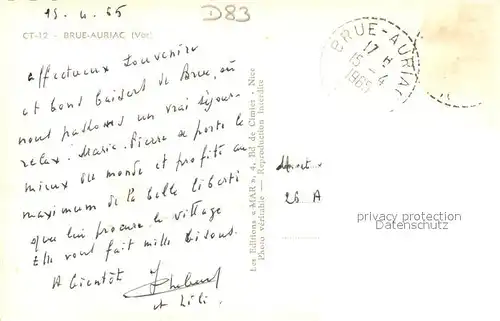 15. 4. 65
D83
CT-12 - BRUE-AURIAC (Var)
Affectueux souvenirs
et bons baisers de Brue, où
nous passons un vrai séjour
relax. Marie-Pierre se porte le
mieux du monde et profite au
maximum de la belle liberté
que lui procure le village
Elle vous fait mille bisous.
A bientôt
et Lili.
Les Editions « MAR », 4, Bd de Cimiez - Nice
Photo véritable — Reproduction interdite
BRUE-AURIAC
17 H
15 - 4
1965
26 A
property protection
Datenschutz.